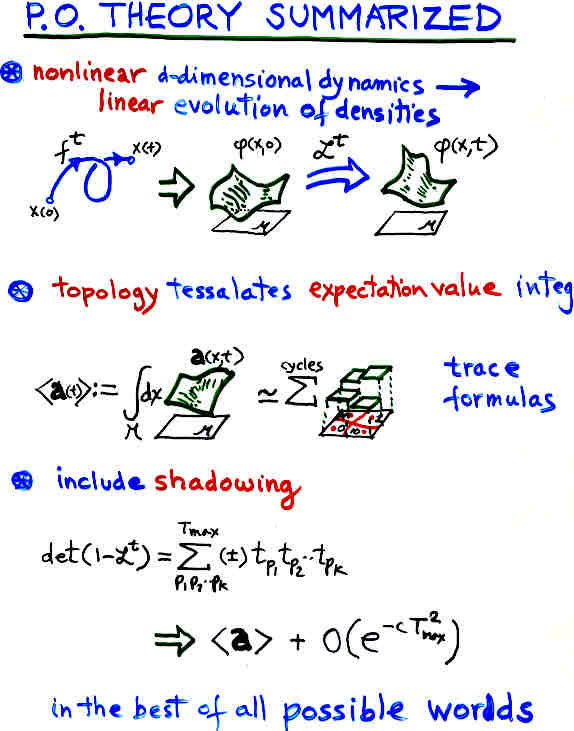 P.O. THEORY SUMMARIZED
nonlinear d-dimensional dynamics →
linear evolution of densities
f^t x(t) φ(x,0) 𝓛^t φ(x,t)
x(0) ⇒ M ⇒ M
topology tessalates expectation value integ
⟨a(t)⟩ := ∫_M dx a(x,t) M ≃ Σ^cycles trace
formulas
include shadowing
det(1-𝓛^t) = Σ_{p₁p₂··pₖ}^{Tmax} (±) t_{p₁} t_{p₂} ·· t_{pₖ}
⇒ ⟨a⟩ + O(e^{-c T²_{max}})
in the best of all possible worlds